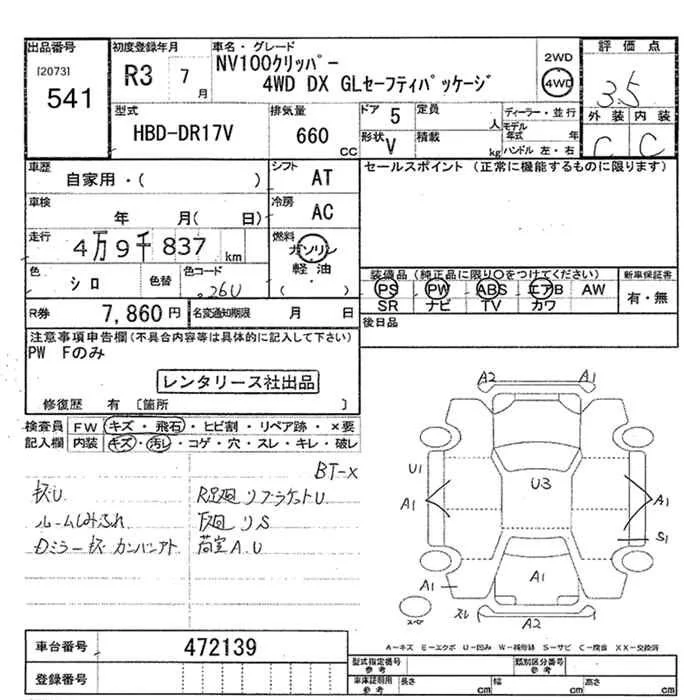 出品番号 初度登録年月 車名・グレード 2WD 評価点
[2073] R3 7 月 NV100クリッパー 4WD 3.5
541 4WD DX GLセーフティパッケージ
外装 内装
C C
型式 排気量 ドア 5 定員 人 ディーラー・並行
HBD-DR17V 660 CC 形状 V 積載 kg モデル年式 年
ハンドル 左・右
車歴 自家用・( ) シフト AT セールスポイント (正常に機能するものに限ります)
車検 年 月( 日) 冷房 AC
走行 4万9千837 km 燃料 ガソリン
軽油
( )
色 シロ 色替 色コード 26U
装備品 (純正品に限り○をつけてください) 新車保証書
PS PW ABS エアB AW 有・無
SR ナビ TV カワ
R券 7,860円 名変通知期限 月 日 後日品
注意事項申告欄(不具合内容等は具体的に記入して下さい)
PW Fのみ
レンタリース社出品
修復歴 有 [箇所 ]
検査員 FW キズ・飛石・ヒビ割・リペア跡・×要
記入欄 内装 キズ・汚レ・コゲ・穴・スレ・キレ・破レ
BT-X
ルームしみ
荷室A.U
A2 A1
U1 U3
A1 A1
S1
A1 A1
スレ A2
スペア
A-キズ E-エクボ U-凹み W-補修跡 S-サビ C-腐食 XX-交換済
車台番号 472139
登録番号
型式指定番号 参考 類別区分番号 参考
車庫証明用 参考 長さ cm 幅 cm 高さ cm